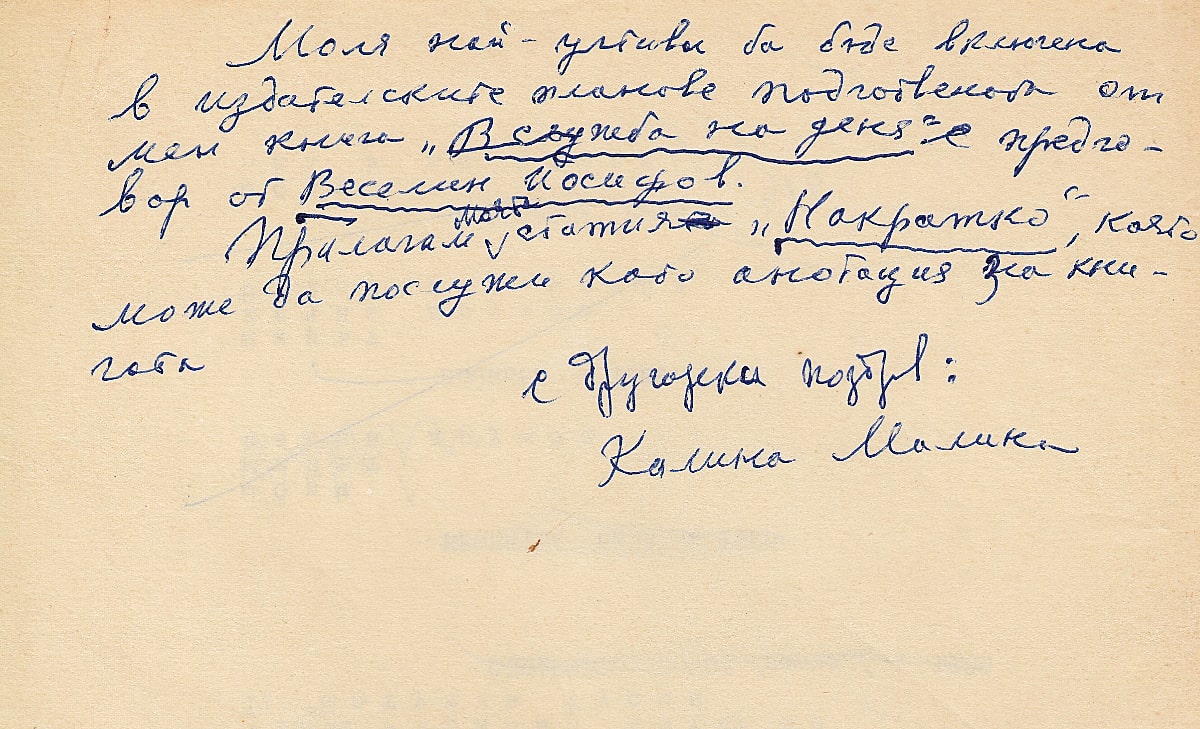 Моля най-учтиво да бъде включена
в издателските планове подготвената от
мен книга „В служба на деня" с предго-
вор от Веселин Йосифов.
Прилагам моята статия „Накратко", която
може да послужи като анотация за кни-
гата
с другарски поздрав:
Калина Малина